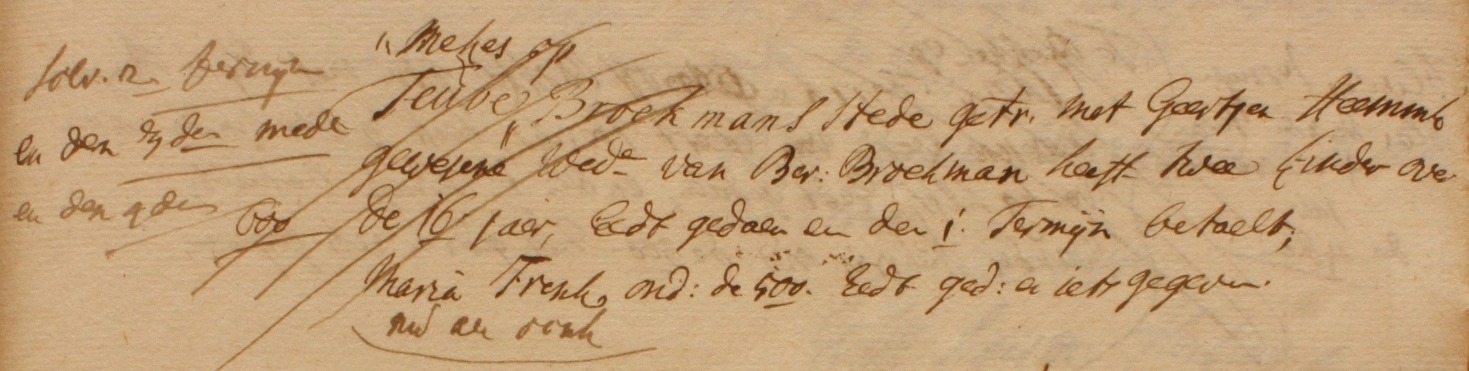 solv. 2 termijn
en den 3 den mede
en den 4 den
600
Mekes op
Teube Broekmans stede getr. met Geertjen Heemink
gewesene Wede van Ber: Broekman heeft twee kinder over
de 16 jaer, Eedt gedaen en den 1. Termijn betaelt;
Maria Trenk, ond: de 500. Eedt ged: en iets gegeven.